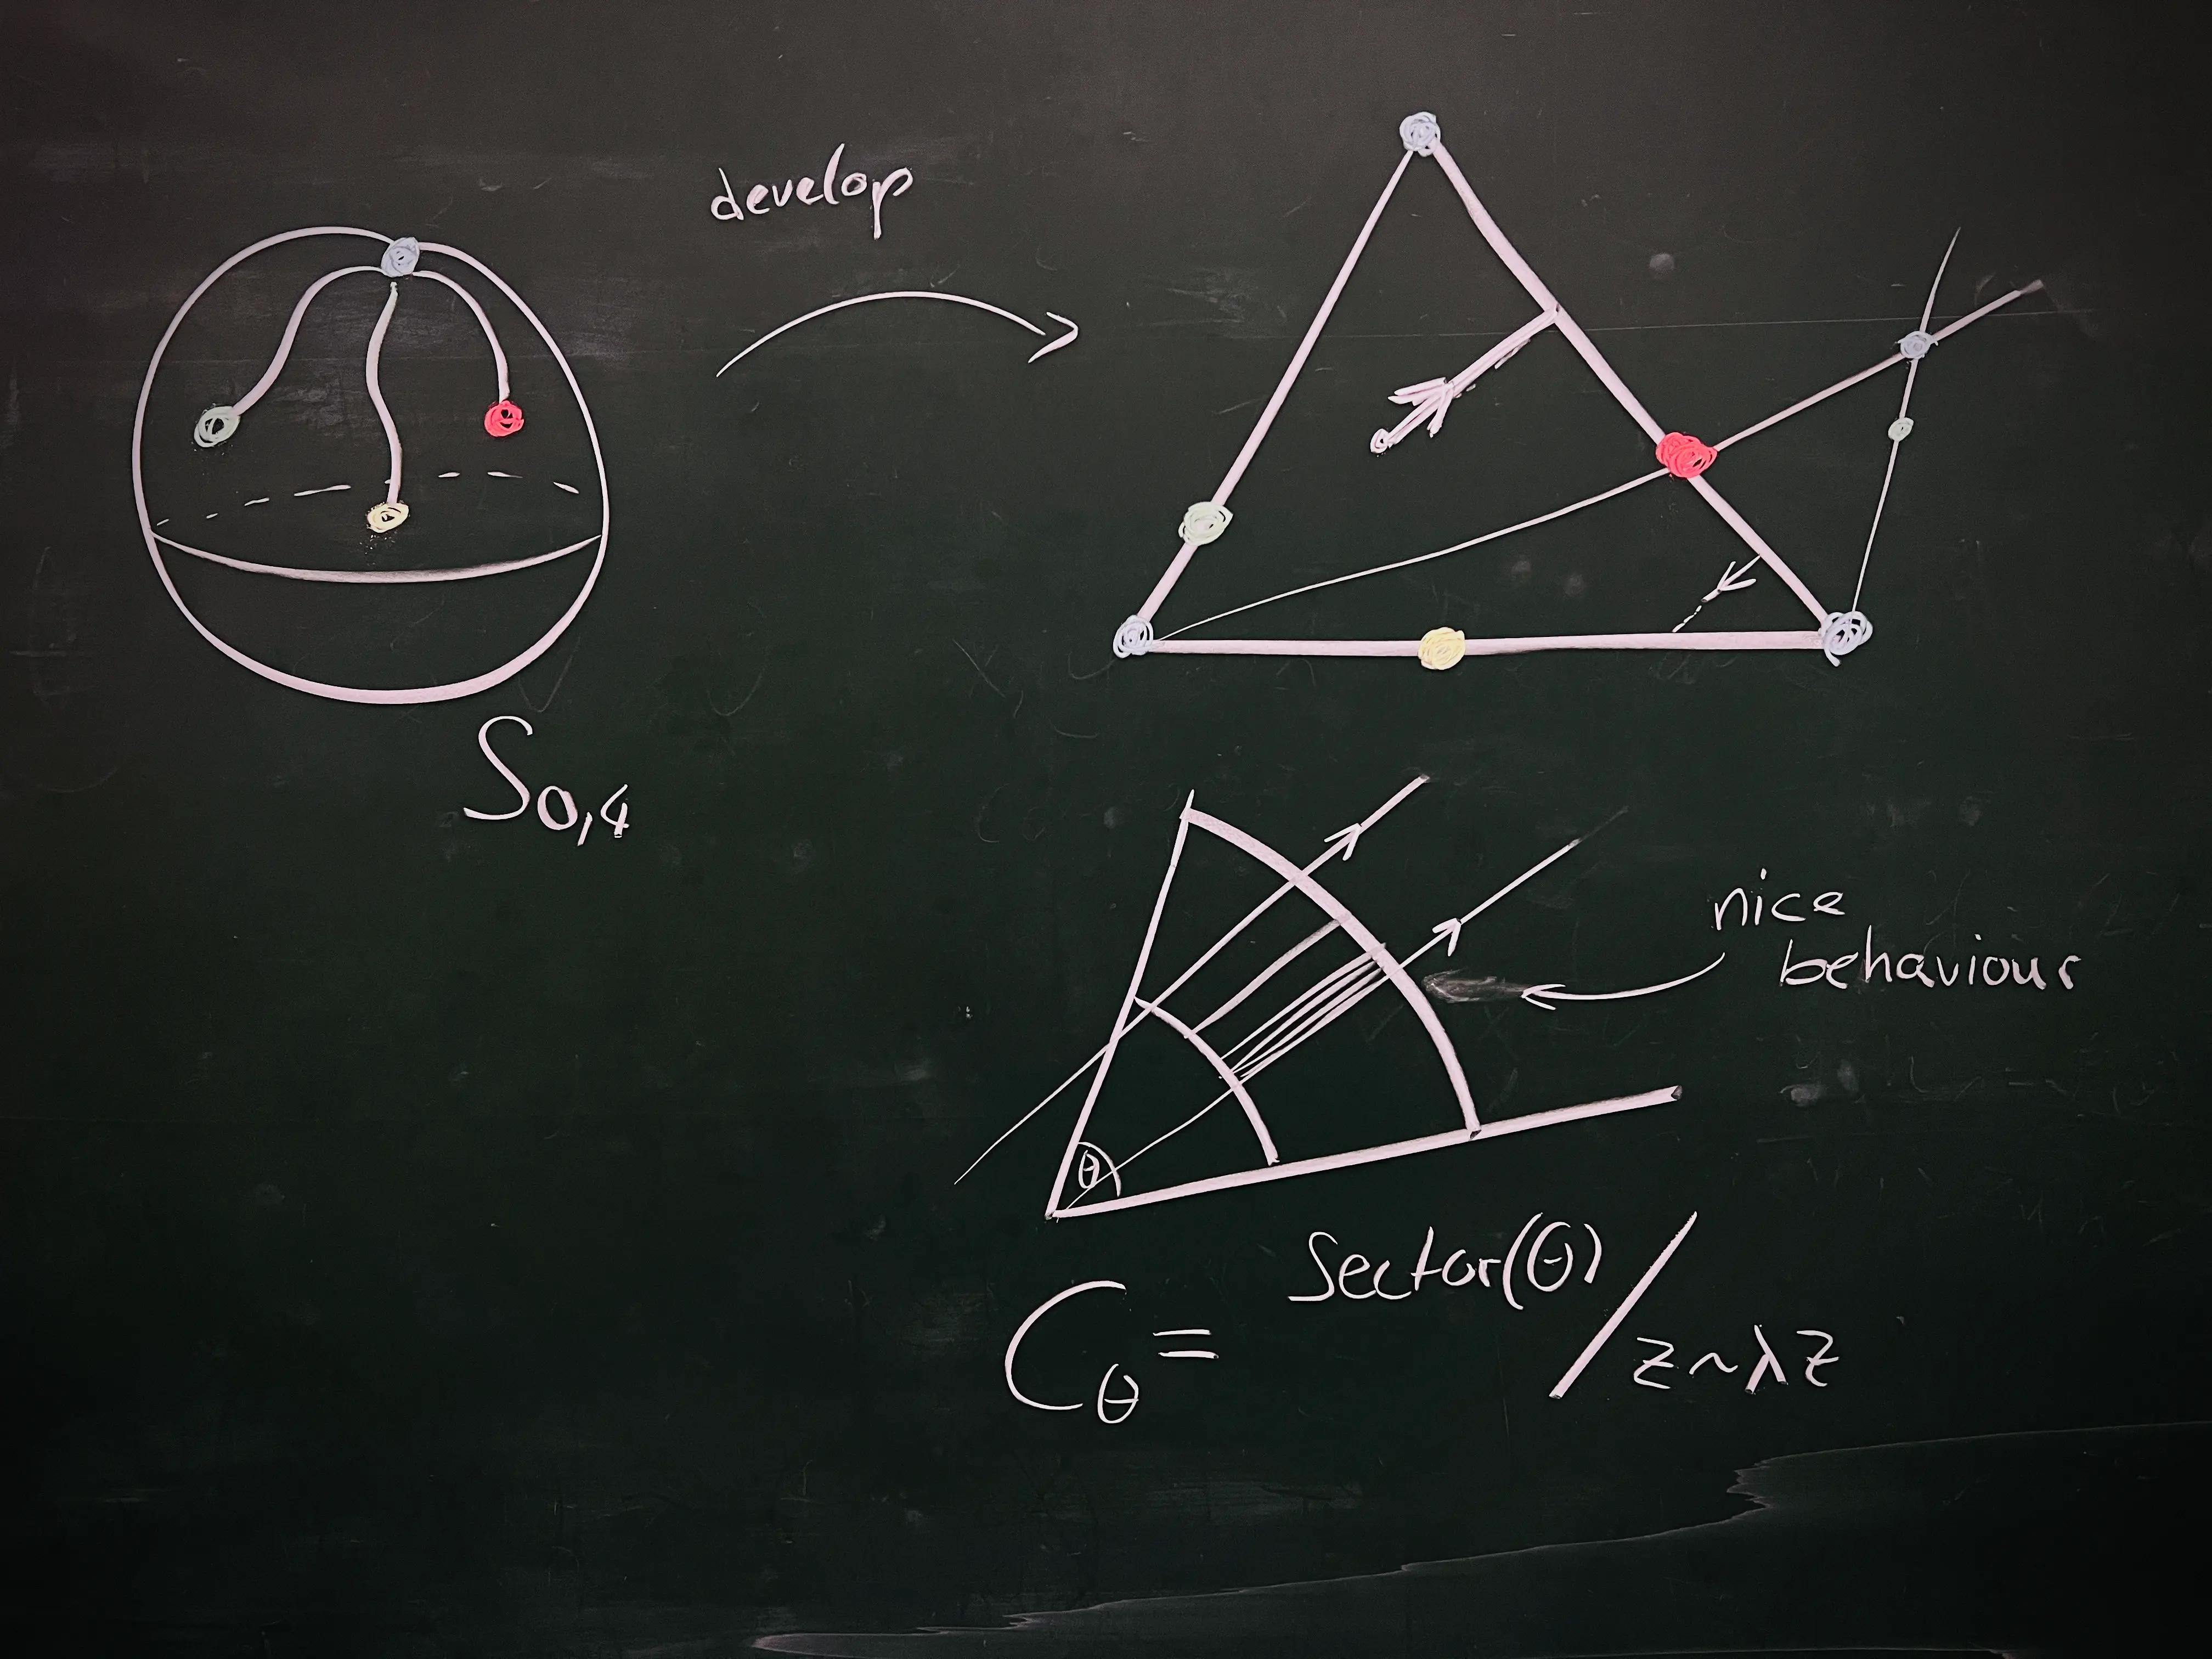 develop
S₀,₄
nice
behaviour
θ
C_θ = Sector(θ) / z ~ λz